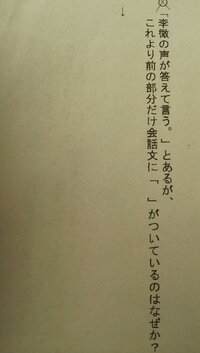 「李徴の声が答えて言う。」とあるが、
これより前の部分だけ会話文に「　」がついているのはなぜか？
↓